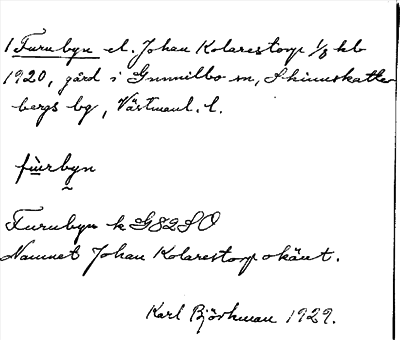 1 Furubyn el. Johan Kolarestorp 1/8 hb
1920, gård i Gunnilbo sn, Skinnskatte-
bergs bg, Västmanl. l.
fùrbyn
Furubyn k G82SO
Namnet Johan Kolarestorp okänt.
Karl Björkman 1929.